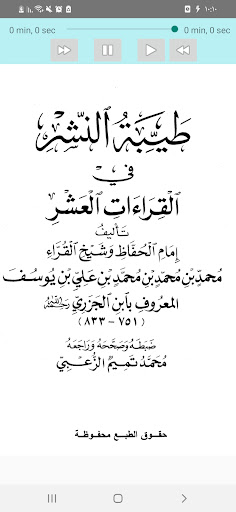 ١٠:١٠
0 min, 0 sec 0 min, 0 sec
طَيِّبَةُ النَّشْرِ
فِي
الْقِرَاءَاتِ الْعَشْرِ
تَأليفُ
إِمَامِ الْحُفَّاظِ وَشَيْخِ الْقُرَّاءِ
مُحَمَّدِ بْنِ مُحَمَّدِ بْنِ مُحَمَّدِ بْنِ عَلِيِّ بْنِ يُوسُفَ
المَعْرُوفِ بِابْنِ الجَزَرِيِّ
(٧٥١ - ٨٣٣)
ضَبَطَهُ وَصَحَّحَهُ وَرَاجَعَهُ
مُحَمَّد تَمِيم الزُّعْبِيّ
حقوق الطبع محفوظة